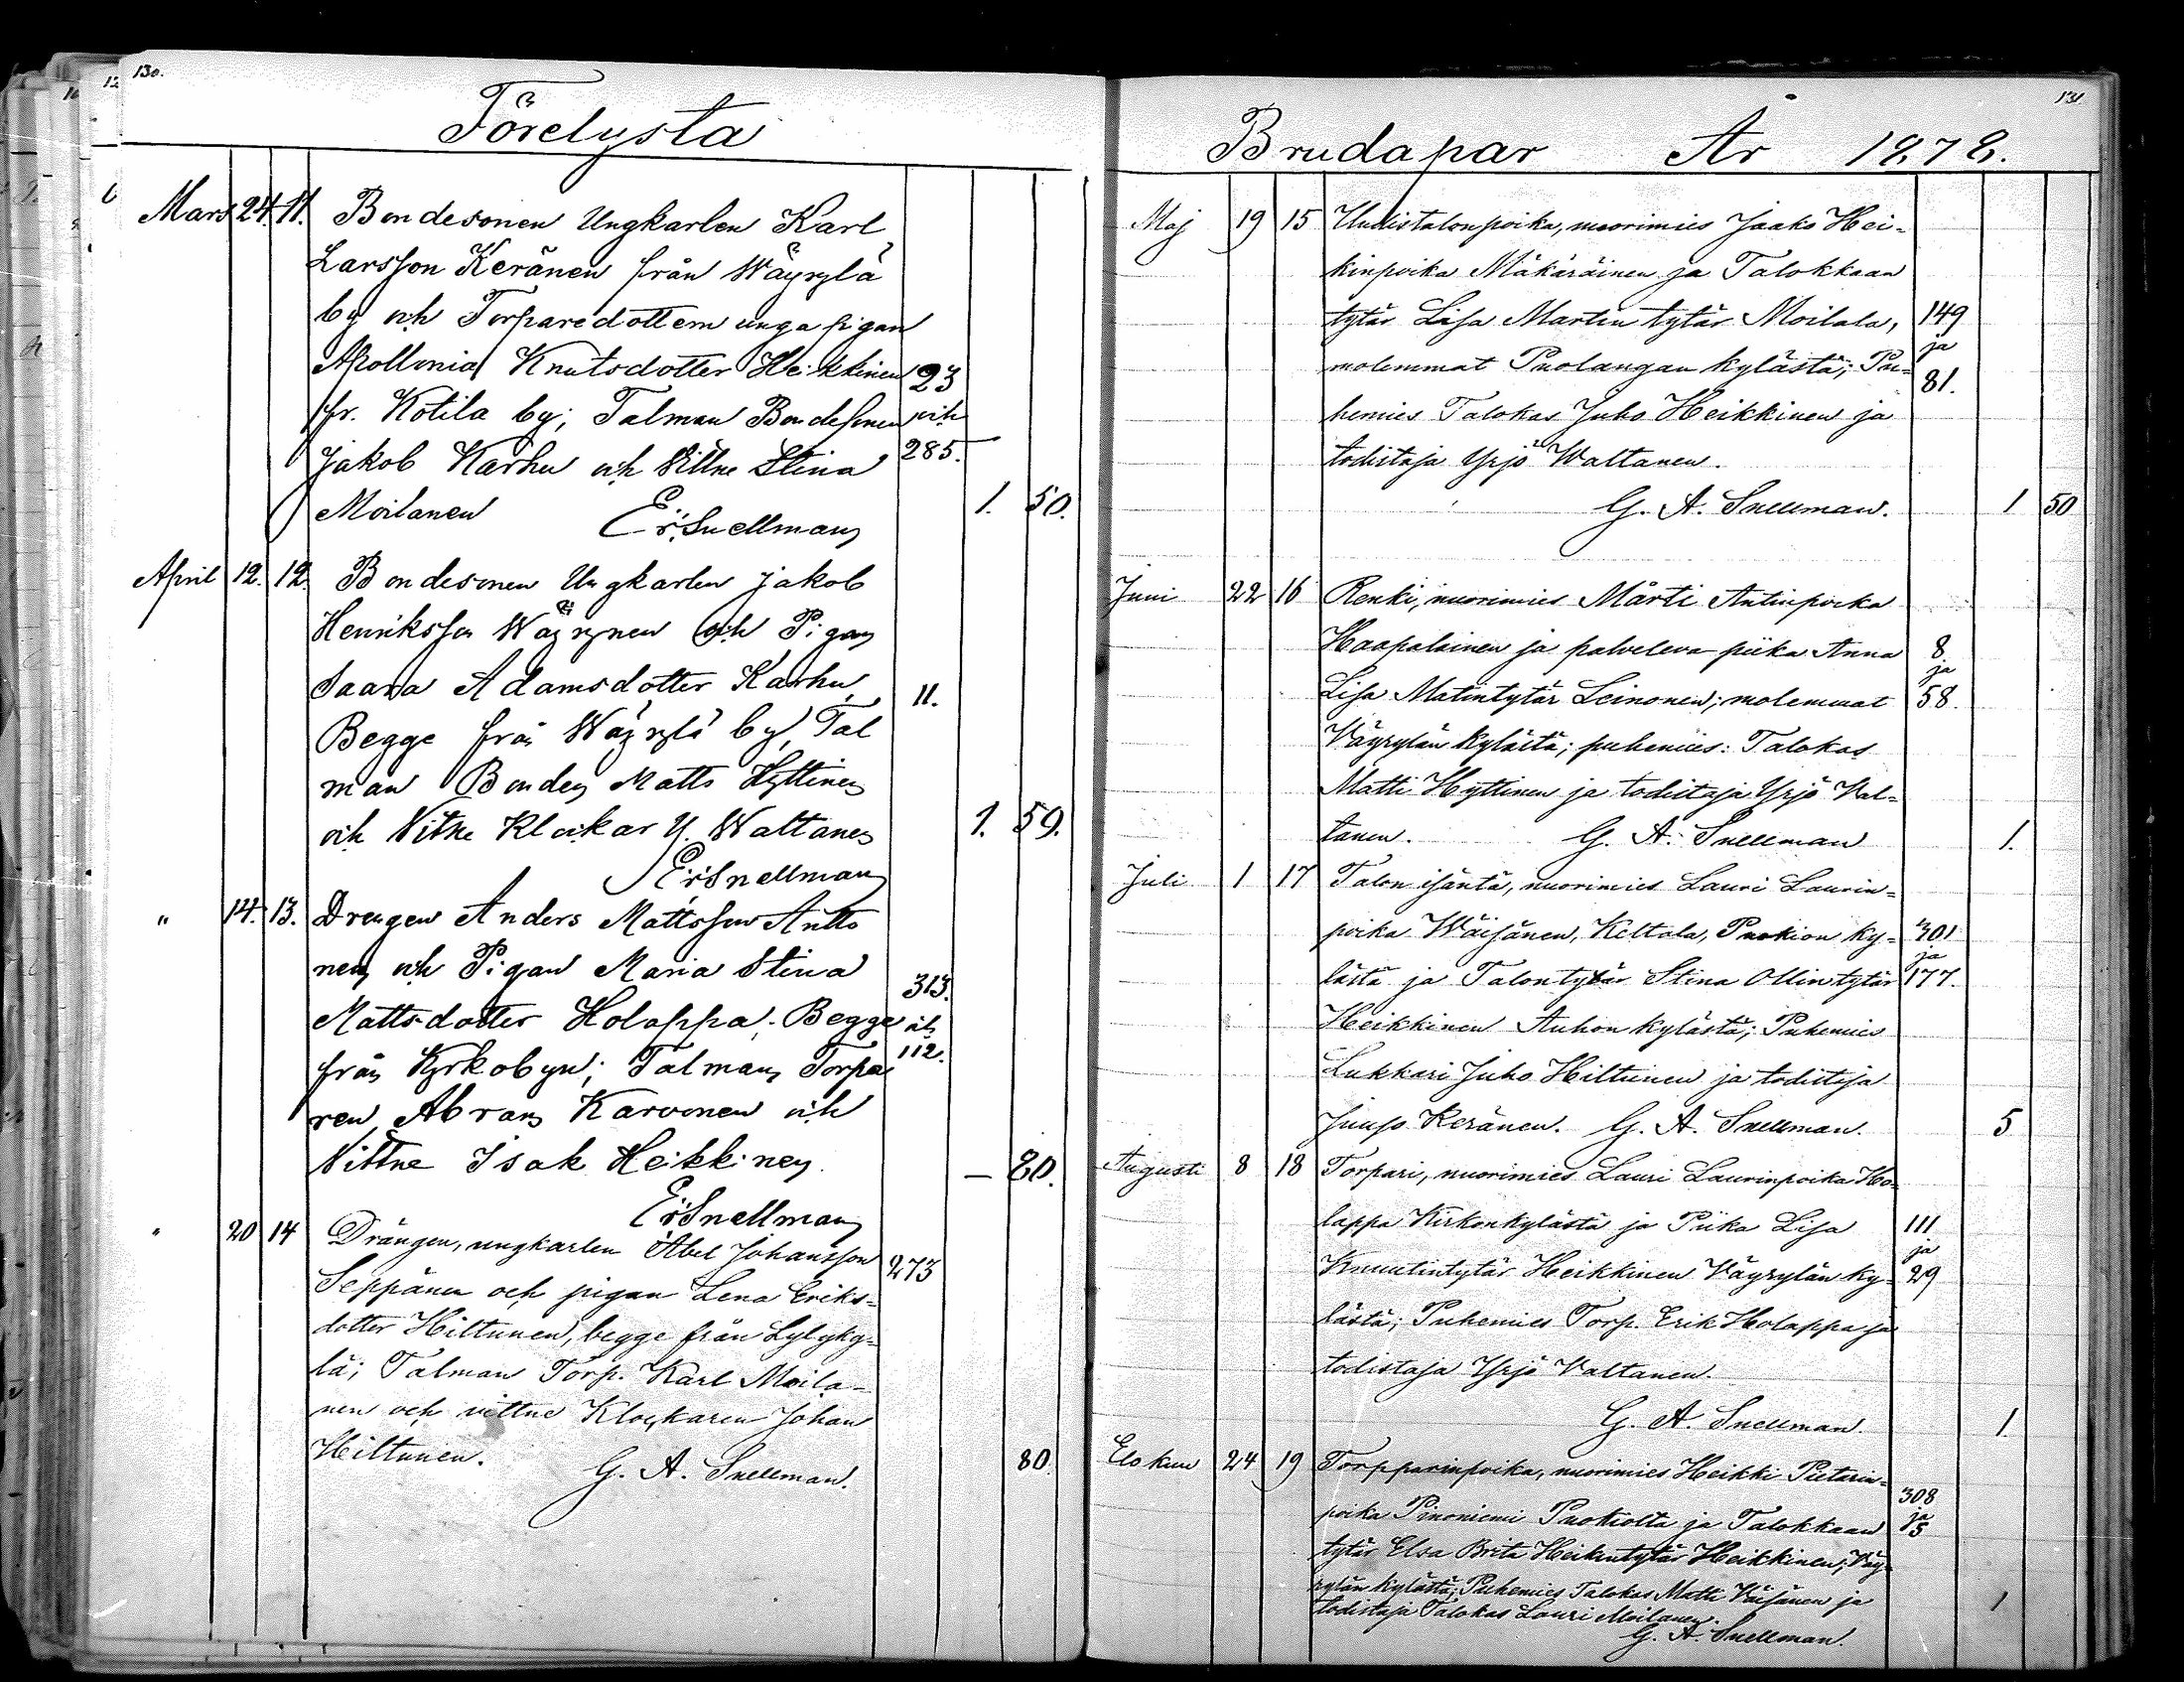 130.
Förelysta
Mars 24. 11. Bondesonen Ungkarlen Karl
Larsson Keränen från Wäyrylä
by och Torparedottern unga pigan
Apollonia Knutsdotter Heikkinen 23
fr. Kotila by; Talman Bondesonen och
Jakob Karhu och Vittne Stina 285.
Moilanen E:r: Snellman 1. 50.
April 12. 12. Bondesonen Ungkarlen Jakob
Henriksson Wäyrynen och Pigan
Saara Adamsdotter Karhu, 11.
Begge från Wäyrylä by, Tal
man Bonden Matts Hyttinen
och Vitne Klockar Y. Waltanen 1. 50.
E:r: Snellman
" 14. 13. Drengen Anders Mattsson Antto
nen och Pigan Maria Stina 313.
Mattsdotter Holappa; Begge och
från Kyrkobyn; Talman Torpa 112.
ren Abram Karvonen och
Vittne Isak Heikkinen. — 80.
E:r: Snellman
" 20 14 Drängen, ungkarlen Abel Johansson 273
Seppänen och pigan Lena Eriks-
dotter Hiltunen, begge från Lylyky-
lä; Talman Torp. Karl Moila-
nen och vittne Klockaren Johan
Hiltunen. G. A. Snellman. 80.
131.
Brudapar År 1878.
Maj 19 15 Uudistalonpoika, nuorimies Jaako Hei-
kinpoika Mäkäräinen ja Talokkaan
tytär Lisa Martin tytär Moilala, 149
ja
molemmat Puolangan kylästä; Pu- 81.
hemies Talokas Juho Heikkinen ja
todistaja Yrjö Waltanen.
G. A. Snellman. 1 50
Juni 22 16 Renki, nuorimies Märti Antinpoika
Haapalainen ja palveleva piika Anna 8
ja
Lisa Matintytär Leinonen; molemmat 58.
Väyrylän kylästä; puhemies: Talokas
Matti Hyttinen ja todistaja Yrjö Val-
tanen. G. A. Snellman 1.
Juli 1 17 Talon isäntä, nuorimies Lauri Laurin-
poika Wäisänen, Keltala, Puokion ky- 301
ja
lästä ja Talontytär Stina Ollintytär 177.
Heikkinen Auhon kylästä; Puhemies
Lukkari Juho Hiltunen ja todistaja
Juuso Keränen. G. A. Snellman. 5
Augusti 8 18 Torpari, nuorimies Lauri Laurinpoika Ho-
lappa Kirkonkylästä ja Piika Lisa 111
ja
Knuutintytär Heikkinen Väyrylän ky- 29
lästä; Puhemies Torp. Erik Holappa ja
todistaja Yrjö Valtanen.
G. A. Snellman. 1.
Elokuu 24 19 Torpparinpoika, nuorimies Heikki Pietarin-
308
poika Pinoniemi Puokiolta ja Talokkaan ja
tytär Elsa Brita Heikintytär Heikkinen, Väy-
rylän kylästä; Puhemies Talokas Matti Väisänen ja 1
todistaja Talokas Lauri Moilanen.
G. A. Snellman.